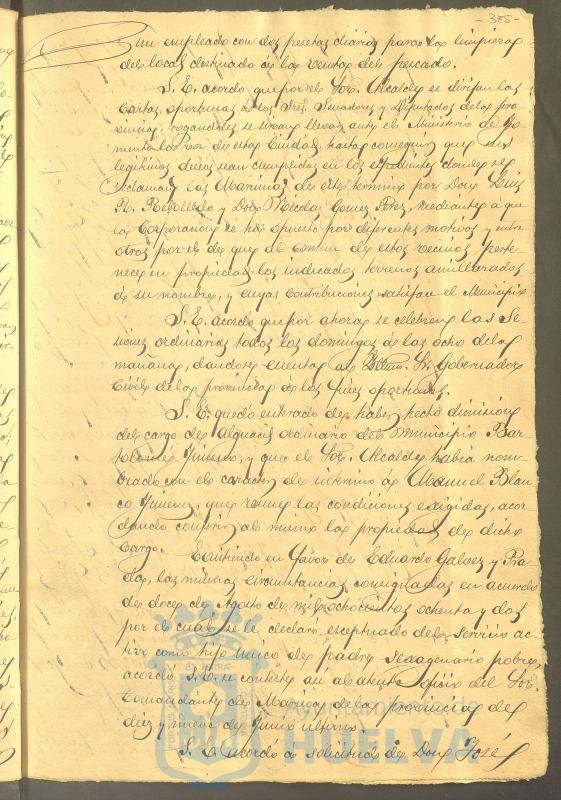 - 375 -
un empleado con dos pesetas diarias para la limpieza
del local destinado á la venta del pescado.
S. E. acordó que por el Sor. Alcalde se dirijan las
cartas oportunas á los Sres. Senadores y Diputados de la pro
vincia, rogandoles se sirvan llevar ante el Ministerio de Fo
mento la voz de esta Ciudad, hasta conseguir que sus
legitimos deseos sean cumplidos en los expedientes donde se
reclaman las Marinas de este termino por Don Luis
R. Rebolledo y Don Nicolas Gomez Perez, mediante á que
la Corporacion se há opuesto por diferentes motivos y entre
otros por el de que al comun de estos vecinos perte
nece en propiedad los indicados terrenos amillarados
á su nombre, y cuyas contribuciones satisface el Municipio
S. E. acordó que por ahora se celebren las Se
siones ordinarias todos los domingos á las ocho de la
mañana, dandose cuenta al Sr. Gobernador
Civil de la provincia á los fines oportunos.
S. E. quedó enterado de haber hecho dimision
del cargo de alguacil ordinario del Municipio Bar
tolomé Jimenez, y que el Sor. Alcalde habia nom
brado con el caracter de interino á Manuel Blan
co Jimenez, que reune las condiciones exigidas, acor
dando conferir al mismo la propiedad de dicho
cargo. Existiendo en favor de Eduardo Galvez y Pra
dos, las mismas circunstancias consignadas en acuerdo
de doce de Agosto de mil ochocientos ochenta y dos
por el cual se le declaró exceptuado del servicio ac
tivo como hijo unico de padre sexagenario pobre,
acordó S. E. se conteste asi al atento oficio del Sor.
Comandante de Marina de la provincia del
diez y nueve de Junio ultimo.
S. E. acordó á solicitud de Don José
Ayuntamiento de
HUELVA